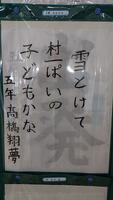 雪とけて
村一ぱいの
子どもかな
五年 高橋翔夢